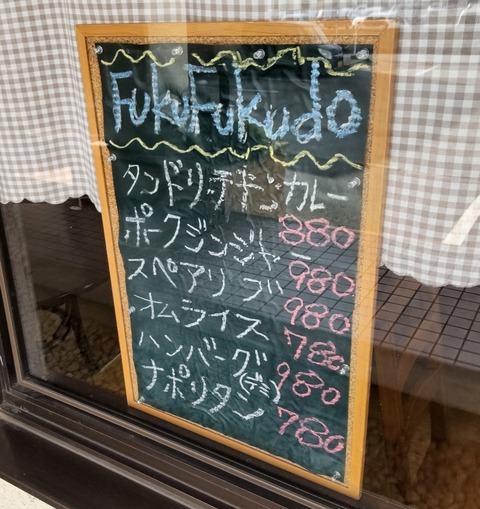 FukuFukudo
タンドリーチキンカレー
880
ポークジンジャー
980
スペアリブ
980
オムライス
780
ハンバーグ(デミ)
980
ナポリタン
780